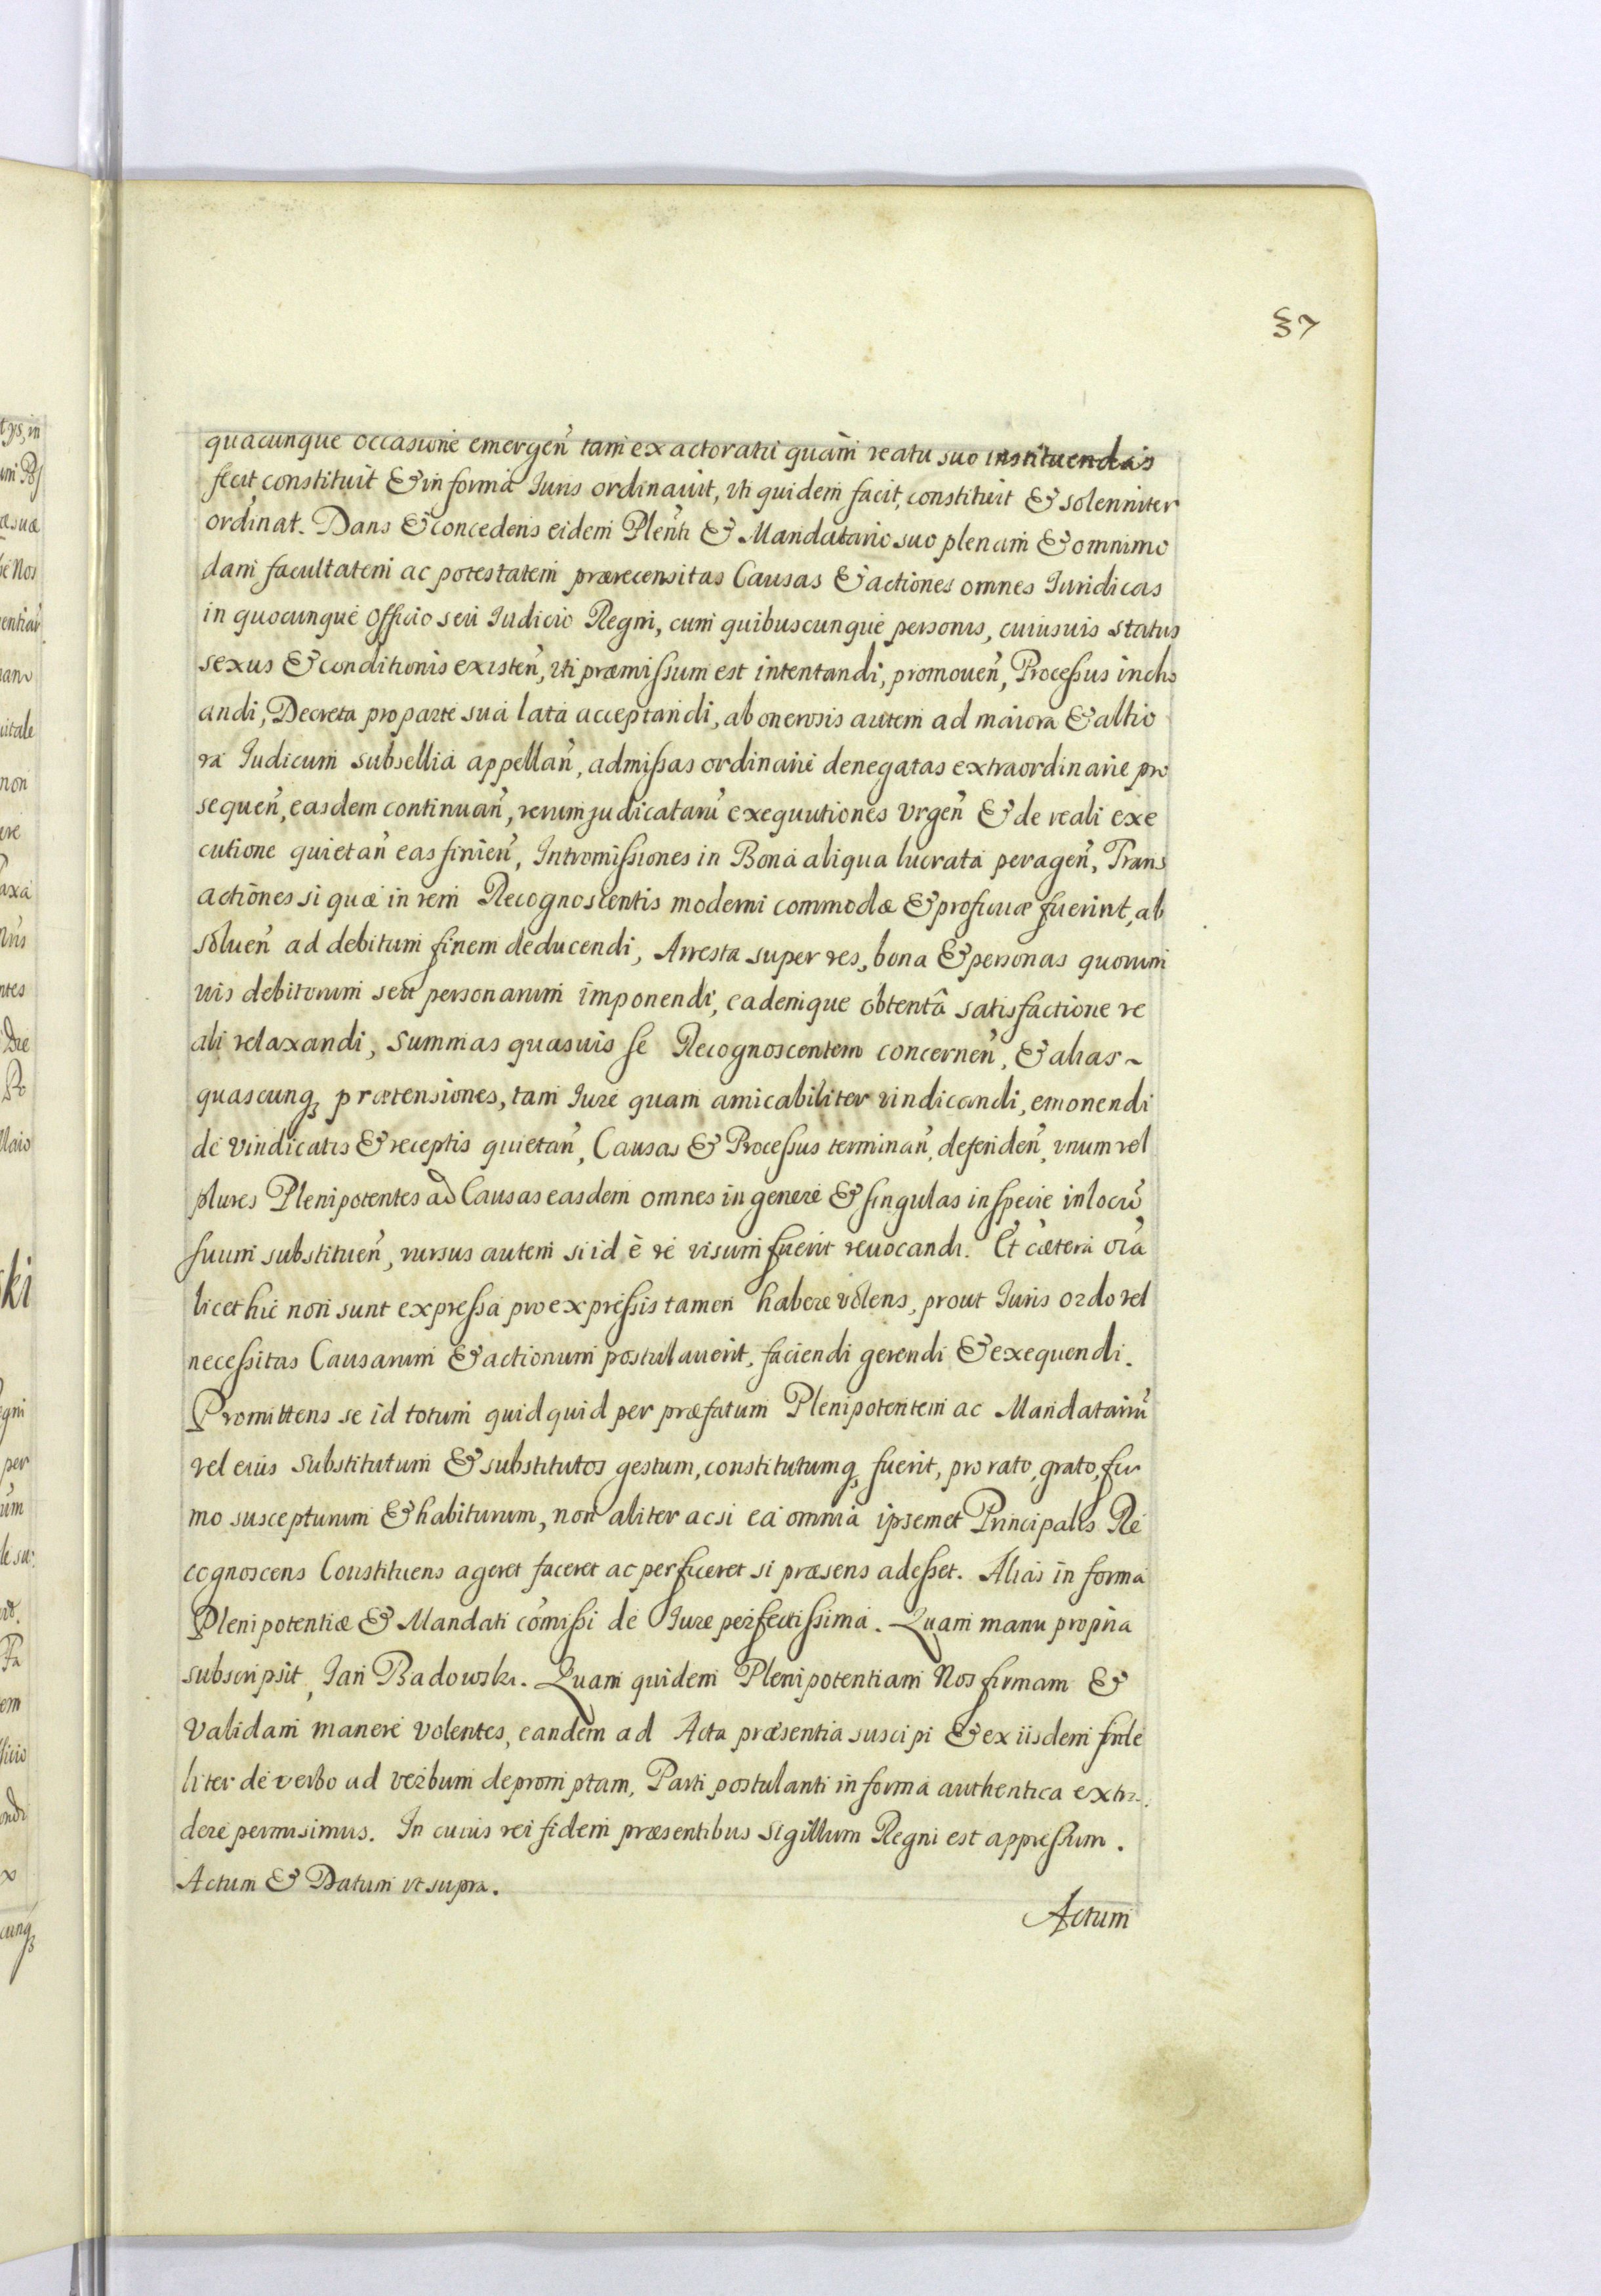 37
quacunque occasione emergeñ tam ex actoratu quàm reatu suo instituendas
fecit constituit & in forma Iuris ordinauit, vti quidem facit, constituit & solenniter
ordinat. Dans & concedens eidem Pleñti & Mandatario suo plenam & omnimo
dam facultatem ac potestatem prærecensitas Causas & actiones omnes Iuridicas
in quocunque Officio seu Iudicio Regni, cum quibuscunque personis, cuiusuis status
sexus & conditionis existeñ, vti præmissum est intentandi, promoueñ, Processus incho
andi, Decreta pro parte sua lata acceptandi, ab onerosis autem ad maiora & altio
ra Iudicum subsellia appellañ, admissas ordinarie denegatas extraordinarie pro
sequeñ, easdem continuañ, rerum judicatarũ exequutiones vrgeñ & de reali exe
cutione quietañ eas finieñ, Intromissiones in Bona aliqua lucrata perageñ, Trans
actiones si quæ in rem Recognoscentis moderni commodæ & proficuæ fuerint, ab
solueñ ad debitum finem deducendi, Arresta super res, bona & personas quorum
uis debitorum seu personarum imponendi, eademque obtentâ satisfactione re
ali relaxandi, summas quasuis se Recognoscentem concerneñ, & alias~
quascunq; prætensiones, tam Iure quam amicabiliter vindicandi, emonendi
de vindicatis & receptis quietañ, Causas & Processus terminañ, defendeñ, vnum vel
plures Plenipotentes ad Causas easdem omnes in genere & singulas in specie in locũ
suum substitueñ, rursus autem si id è re visum fuerit reuocandi. Et cætera oĩa
licet hic non sunt expressa pro expressis tamen habere volens, prout Iuris ordo vel
necessitas Causarum & actionum postulauerit, faciendi gerendi & exequendi.
Promittens se id totum quidquid per præfatum Plenipotentem ac Mandatariũ
vel eius substitutum & substitutos gestum, constitutumq; fuerit, pro rato, grato, fir
mo suscepturum & habiturum, non aliter acsi ea omnia ipsemet Principalis Re
cognoscens Constituens ageret faceret ac perficeret si præsens adesset. Alias in forma
Plenipotentiæ & Mandati cõmissi de Iure perfectissima. Quam manu propria
subscripsit, Jan Badowski. Quam quidem Plenipotentiam Nos firmam &
validam manere volentes, eandem ad Acta præsentia suscipi & ex iisdem fide
liter de verbo ad verbum depromptam, Parti postulanti in forma authentica extra
dere permisimus. In cuius rei fidem præsentibus sigillum Regni est appressum.
Actum & Datum vt supra.
Actum